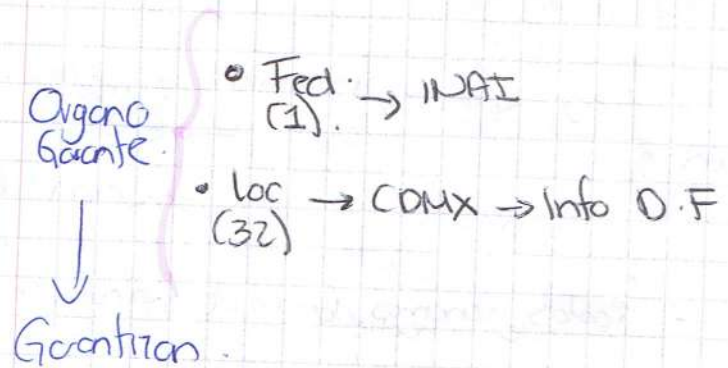 Organo
Garante.
• Fed. → INAI
(1).
• loc → CDMX → Info D.F
(32)
Garantizan.